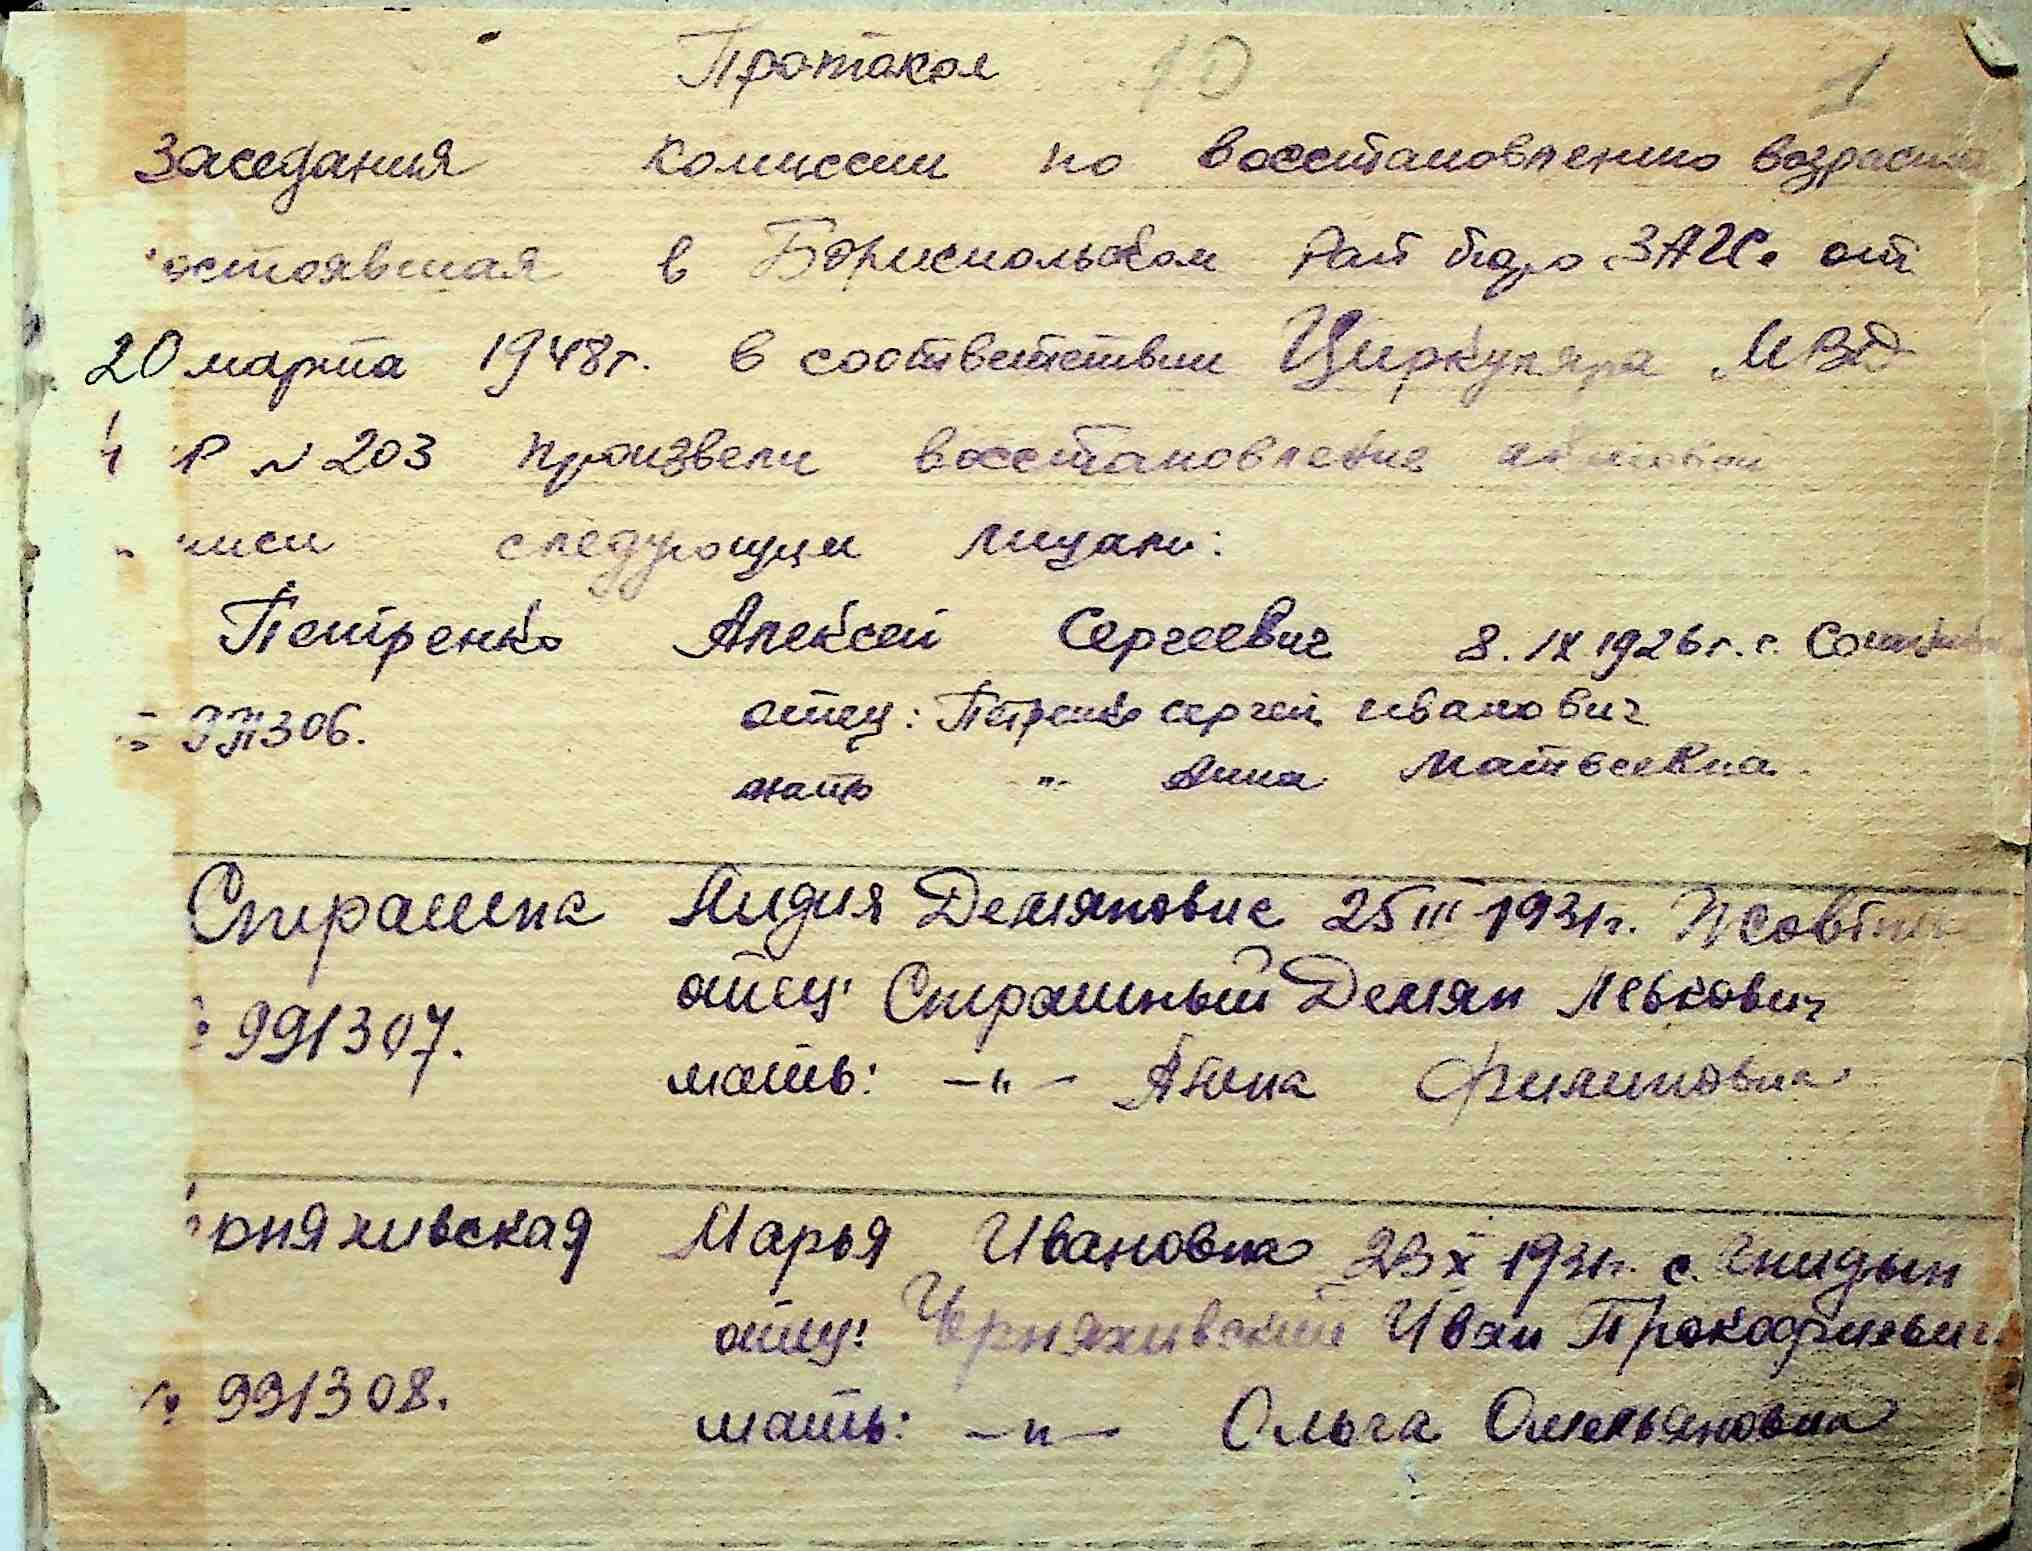 Протакол 10 1
Заседания комиссии по восстановлению возраста
остоявшая в Бориспольском Рай бюро ЗАГС. от
20 марта 1948г. в соответствии Циркуляра МВД
Р № 203 произвели восстановление актовой
писи следующим лицам:
Петренко Алексей Сергеевич 8. IX 1926г. с.
отец: Петренко Сергей Иванович
306.
мать " Анна Матвеевна.
Страшна Лидия Демяновна 25 III 1931г.
отец: Страшный Демян Левкович
991307.
мать: -"- Анна Филиповна
рняхивская Марья Ивановна 23 X 1931г. с. Гнидын
отец: Черняхивский Иван Прокофиевич
991308.
мать: -"- Ольга Омельяновна